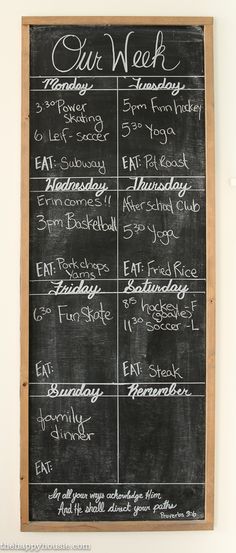 Our Week
Monday
3:30 Power
Skating
6 Leif - soccer
EAT: Subway
Tuesday
5pm Finn hockey
5:30 Yoga
EAT: Pot Roast
Wednesday
Erin comes!!
3pm Basketball
EAT: Pork chops
Yams
Thursday
After school Club
5:30 Yoga
EAT: Fried Rice
Friday
6:30 Fun Skate
EAT:
Saturday
hockey - F
(goalie)
11:30 soccer - L
EAT: Steak
Sunday
family
dinner
EAT:
Remember
In all your ways acknowledge Him
And He shall direct your paths
Proverbs 3:6
thehappyhousie.com